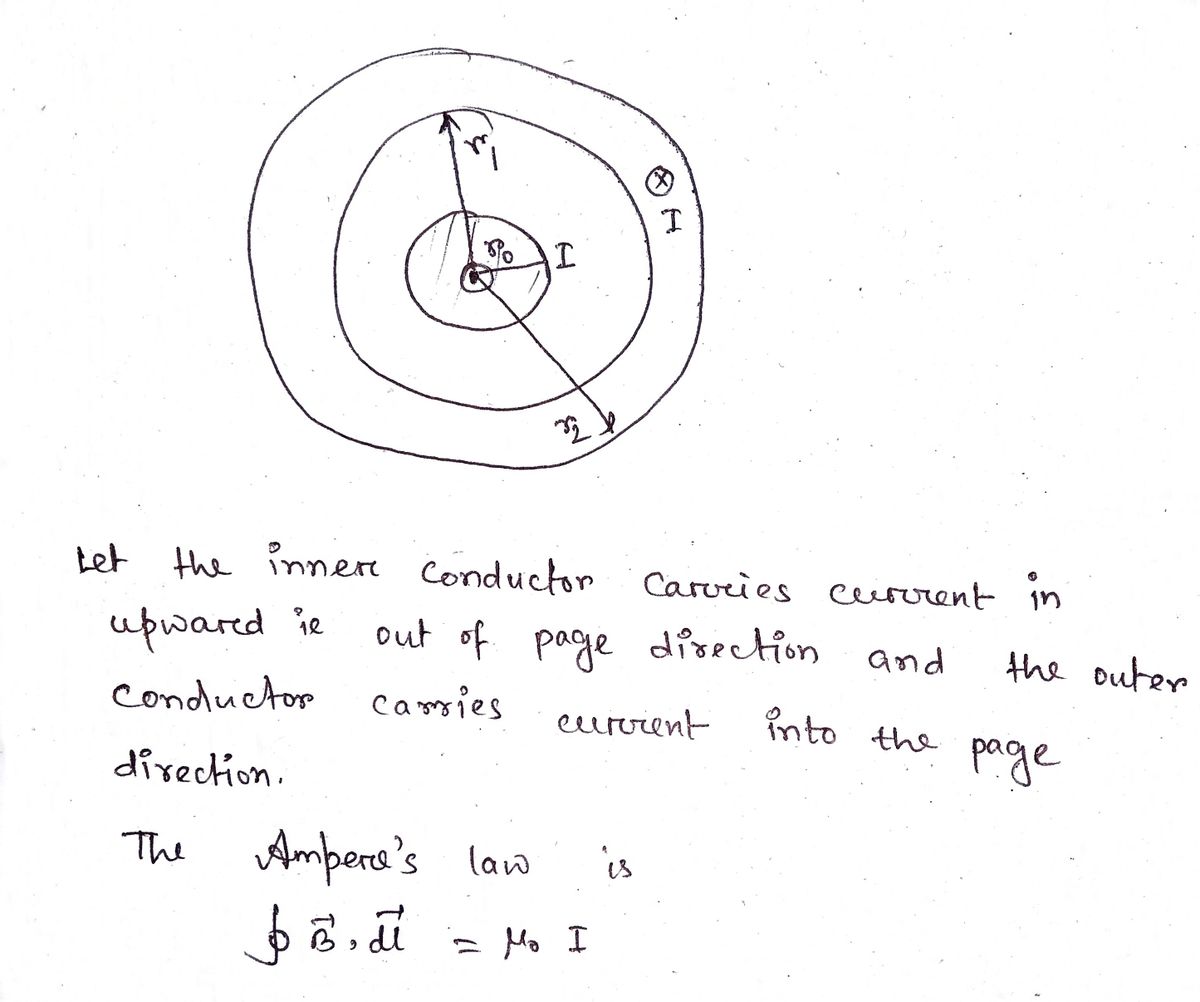 r₁
⊗
I
r₀ I
r₂
Let the inner conductor carries current in
upward ie out of page direction and the outer
conductor carries current into the page
direction.
The Ampere's law is
∮ B⃗ . dl⃗ = μ₀ I